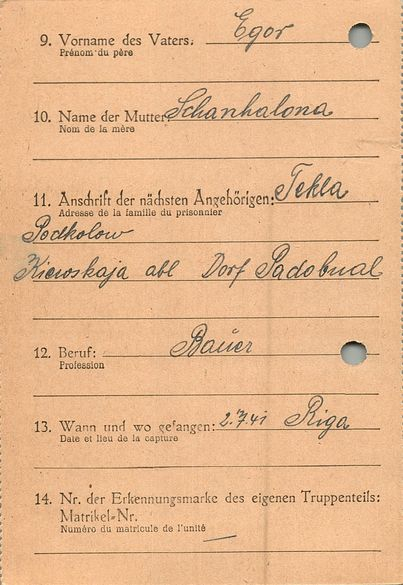 9. Vorname des Vaters: Egor
Prénom du père
10. Name der Mutter: Schanhalona
Nom de la mère
11. Anschrift der nächsten Angehörigen: Tekla
Adresse de la famille du prisonnier
Podkolow
Kiewskaja obl Dorf Padobnal
12. Beruf: Bauer
Profession
13. Wann und wo gefangen: 2.7.41 Riga
Date et lieu de la capture
14. Nr. der Erkennungsmarke des eigenen Truppenteils:
Matrikel-Nr. —
Numéro du matricule de l'unité